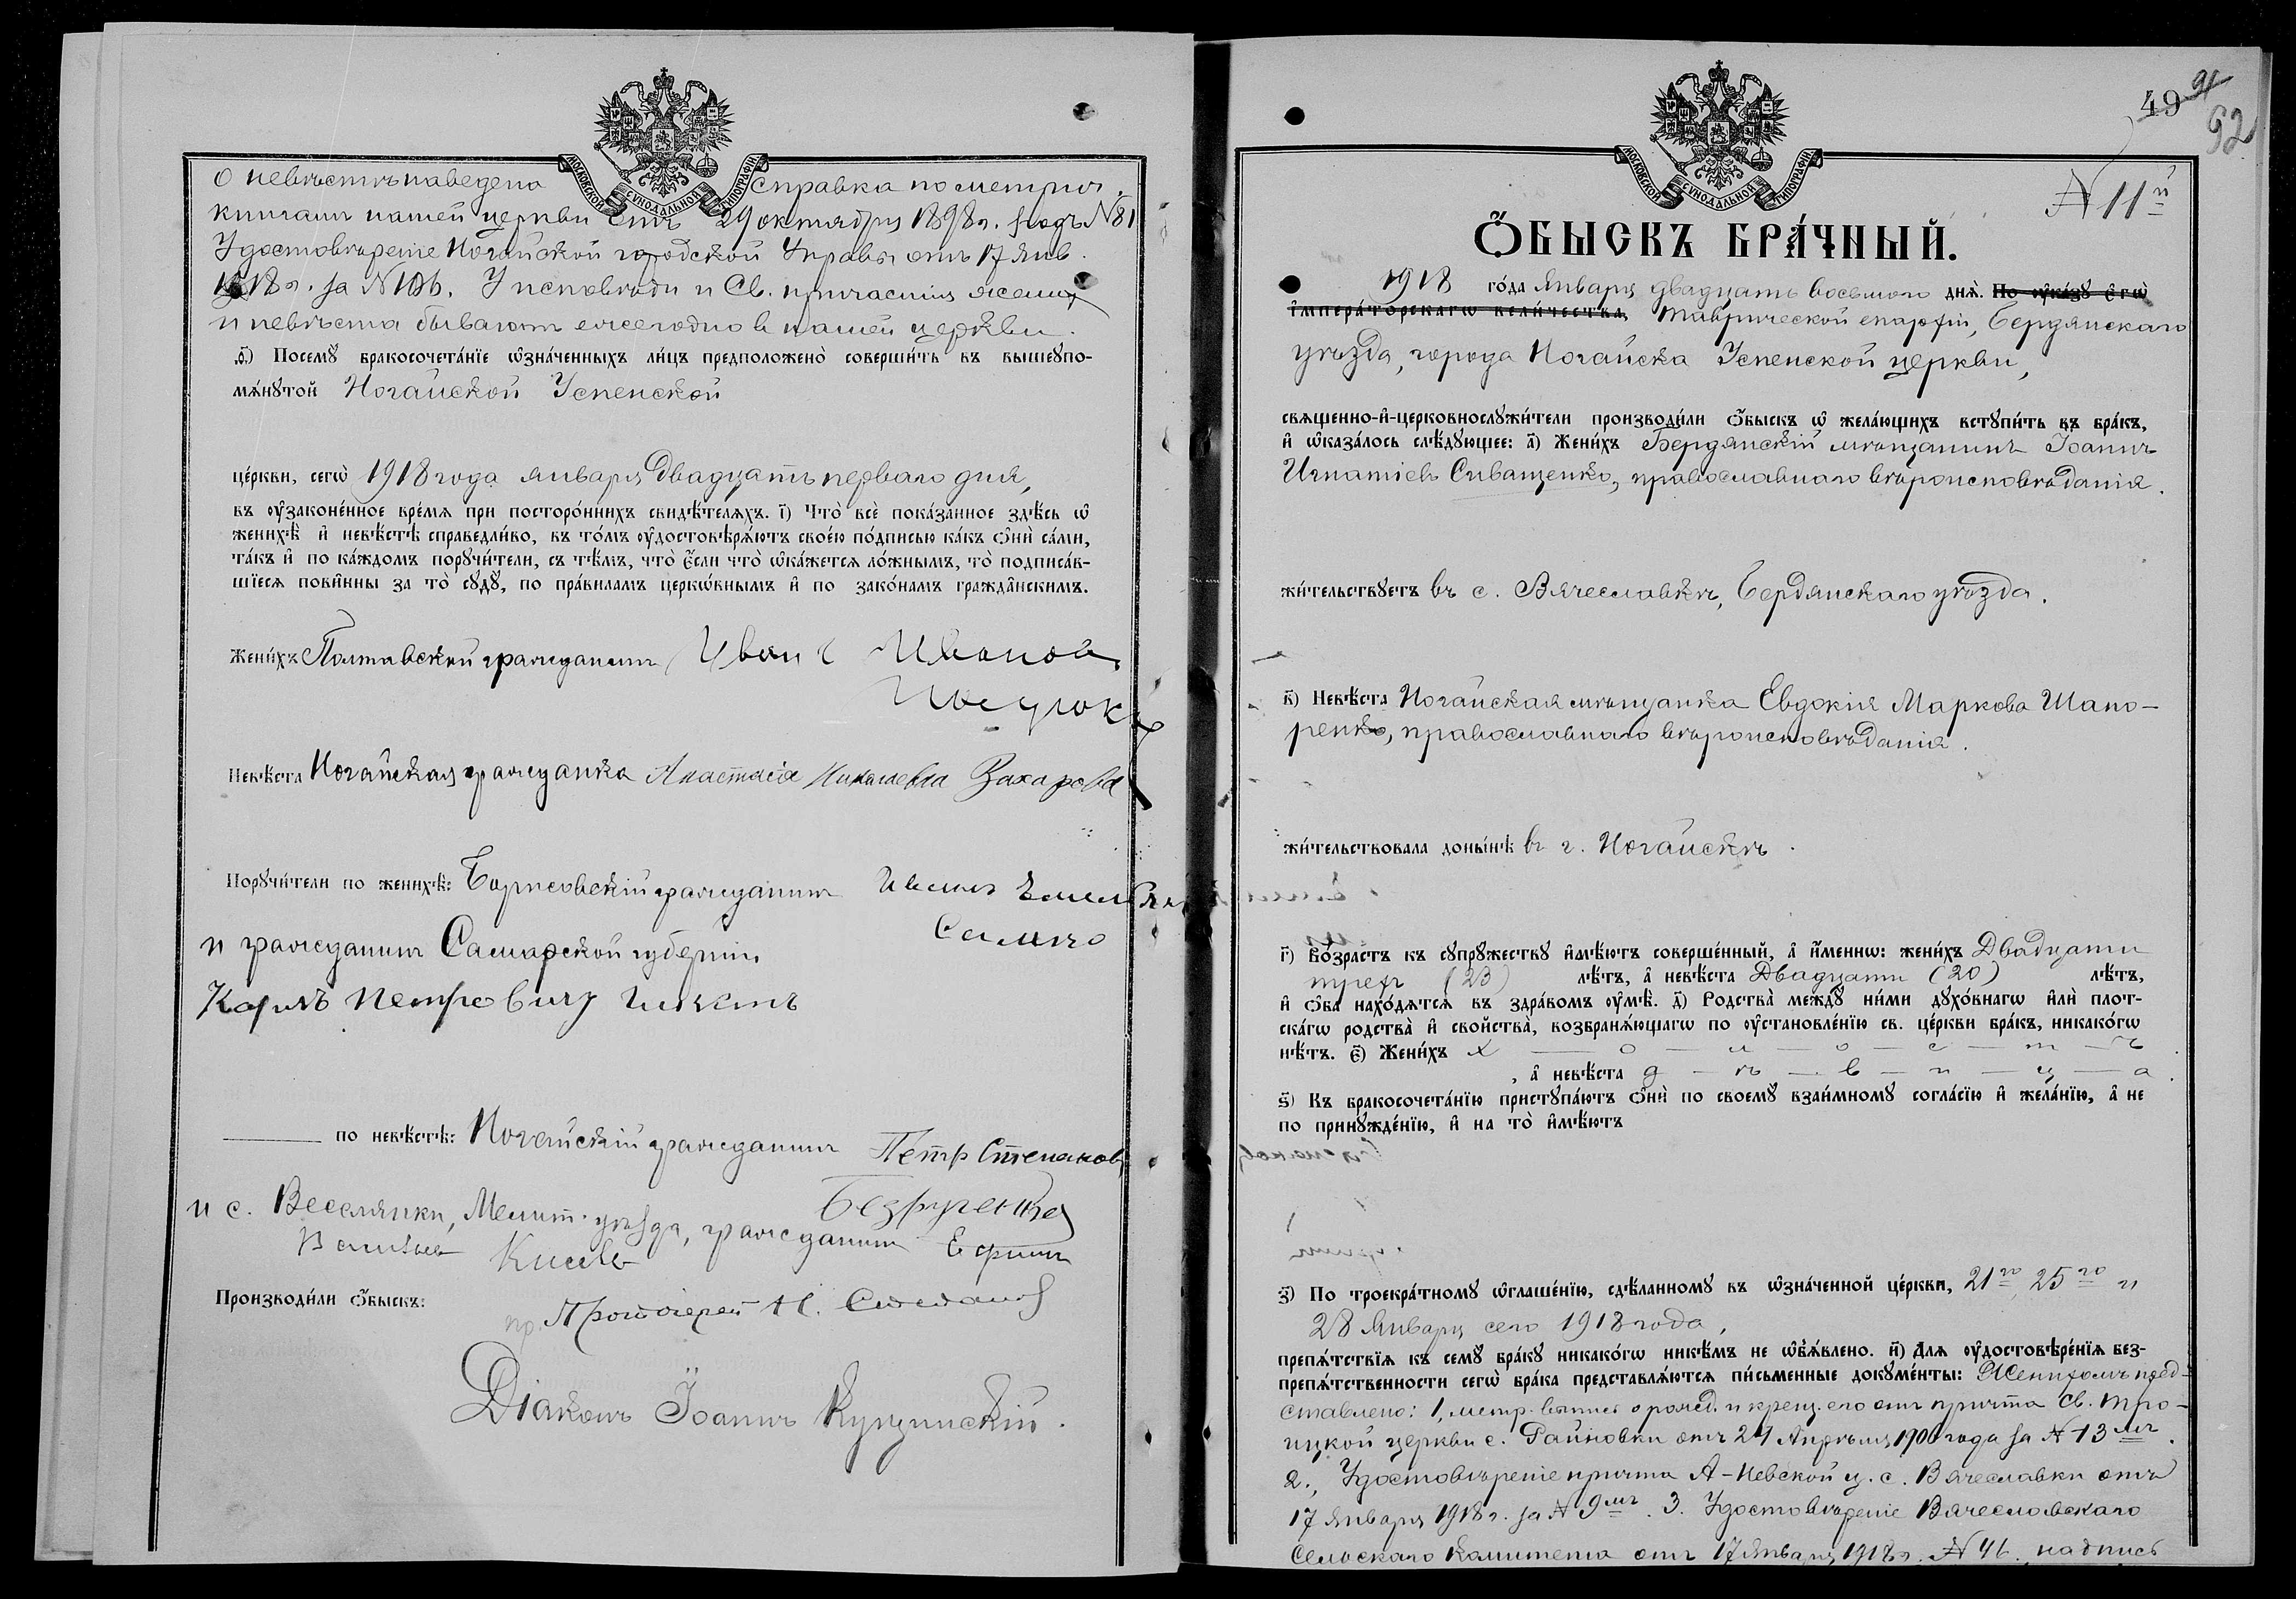 МОСКОВСКОЙ СѴНОДАЛЬНОЙ ТИПОГРАФІИ
О невѣстѣ наведена справка по метрич.
книгамъ нашей церкви отъ 29 октября 1898 г. подъ №81
Удостовѣреніе Ногайской городской Управы отъ 17 янв.
1918 г. за №106. У исповѣди и Св. причастія женихъ
и невѣста бываютъ ежегодно в нашей церкви.
ѳ҃) Посемꙋ бракосочета́нїе ѡ҆зна́ченныхъ ли́цъ предположено̀ соверши́ть въ вышеупо-
мѧ́нꙋтой Ногайской Успенской
це́ркви, сегѡ̀ 1918 года января двадцать перваго дня,
въ ᲂу҆законе́нное вре́мѧ при посторо́ннихъ свидѣ́телѧхъ. і҃) Что̀ всѐ пока́занное здѣ́сь ѡ҆
женихѣ̀ и҆ невѣ́стѣ справедли́во, въ то́мъ ᲂу҆достовѣрѧ́ютъ свое́ю по́дписью ка́къ ѻ҆нѝ са́ми,
та́къ и҆ по ка́ждомъ порꙋчи́тели, съ тѣ́мъ, что̀ є҆́сли что̀ ѡ҆ка́жетсѧ ло́жнымъ, то̀ подписа́в-
шїесѧ пови́нны за то̀ сꙋдꙋ̀, по пра́виламъ церкѡ́внымъ и҆ по зако́намъ гражда́нскимъ.
Жени́хъ Полтавский гражданинъ Иван Иванов
Невѣ́ста Ногайская гражданка Анастасія Николаевна Захарова
Порꙋчи́тели по женихѣ̀: Борисовскій гражданинъ Иванъ Емельян
и гражданинъ Самарской губерніи
Карлъ Петровичъ
по невѣ́стѣ: Ногайскій гражданинъ Петр Степанов
и с. Веселянки, Мелит. уѣзда, гражданинъ Ефимъ
Произво́дили ѻ҆́быскъ:
Протоіерей Н. Степанов
Діаконъ Іоаннъ Кущинскій.
49 91
92
МОСКОВСКОЙ СѴНОДАЛЬНОЙ ТИПОГРАФІИ
№11й
Ѻ҆́БЫСКЪ БРА́ЧНЫЙ.
1918 го́да января двадцать восьмого днѧ̀. По ᲂу҆ка́зꙋ є҆гѡ̀
і҆мпера́торскагѡ вели́чества, Таврической епархіи, Бердянскаго
уѣзда, города Ногайска Успенской церкви,
свѧщенно-и҆-церковнослꙋжи́тели произво́дили ѻ҆́быскъ ѡ҆ жела́ющихъ встꙋпи́ть въ бра́къ,
и҆ ѡ҆каза́лось слѣ́дꙋющее: а҃) Жени́хъ Бердянскій мѣщанинъ Іоаннъ
Игнатіевъ Сиващенко, православнаго вѣроисповѣданія.
жи́тельствꙋетъ въ с. Вячеславкѣ, Бердянскаго уѣзда.
в҃) Невѣ́ста Ногайская мѣщанка Евдокія Маркова Шапо-
ренко, православнаго вѣроисповѣданія.
жи́тельствовала доны́нѣ въ г. Ногайскѣ.
г҃) Во́зрастъ къ сꙋпрꙋ́жествꙋ и҆мѣ́ютъ соверше́нный, а҆ и҆́меннѡ: жени́хъ Двадцати
трехъ (23) лѣ́тъ, а҆ невѣ́ста Двадцати (20) лѣ́тъ,
и҆ ѻ҆́ба нахо́дѧтсѧ въ здра́вомъ ᲂу҆мѣ̀. д҃) Родства̀ междꙋ̀ ни́ми дꙋхо́внагѡ и҆лѝ плот-
ска́гѡ родства̀ и҆ сво́йства̀, возбранѧ́ющагѡ по ᲂу҆становле́нїю св. це́ркви бра́къ, никако́гѡ
нѣ́тъ. є҃) Жени́хъ х — о — л — о — с — т — ъ
, а҆ невѣ́ста д — ѣ — в — и — ц — а.
ѕ҃) Къ бракосочета́нїю пристꙋпа́ютъ ѻ҆нѝ по своемꙋ̀ взаи́мномꙋ согла́сїю и҆ жела́нїю, а҆ не
по принꙋжде́нїю, и҆ на то̀ и҆мѣ́ютъ
з҃) По троекра́тномꙋ ѡ҆глаше́нїю, сдѣ́ланномꙋ въ ѡ҆зна́ченной це́ркви, 21го, 25го и
28 января сего 1918 года,
препѧ́тствїѧ къ семꙋ̀ бра́кꙋ никако́гѡ никѣ́мъ не ѡ҆б̾ѧ́влено. и҃) Длѧ ᲂу҆достовѣре́нїѧ без-
препѧ́тственности сегѡ̀ бра́ка представлѧ́ютсѧ пи́сьменные докꙋме́нты: Женихомъ пред-
ставлено: 1, метр. выпись о рожд. и крещ. его отъ причта Св. Тро-
ицкой церкви с. Райновки отъ 24 Апрѣля 1900 года за №13мъ.
2., Удостовѣреніе причта А-Невской ц. с. Вячеславки отъ
17 января 1918 г. за №9мъ. 3. Удостовѣреніе Вячеславскаго
Сельскаго Комитета отъ 17 января 1918 г. №46, надпись